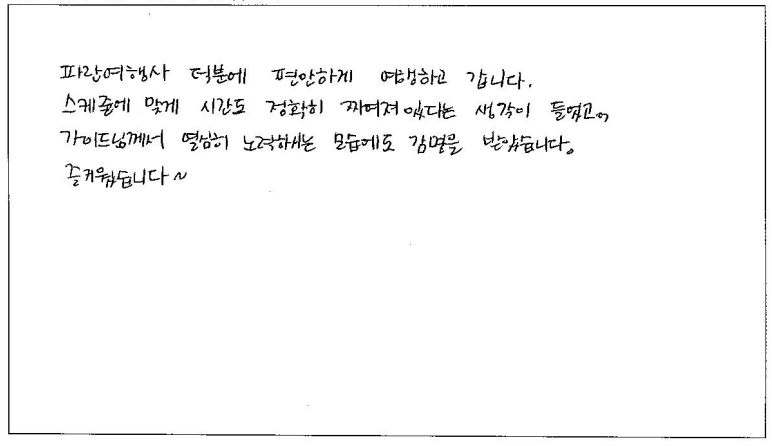 파란여행사 덕분에 편안하게 여행하고 갑니다.
스케쥴에 맞게 시간도 정확히 짜여져있다는 생각이 들었고,
가이드님께서 열심히 노력하시는 모습에도 감명을 받았습니다.
즐거웠습니다~